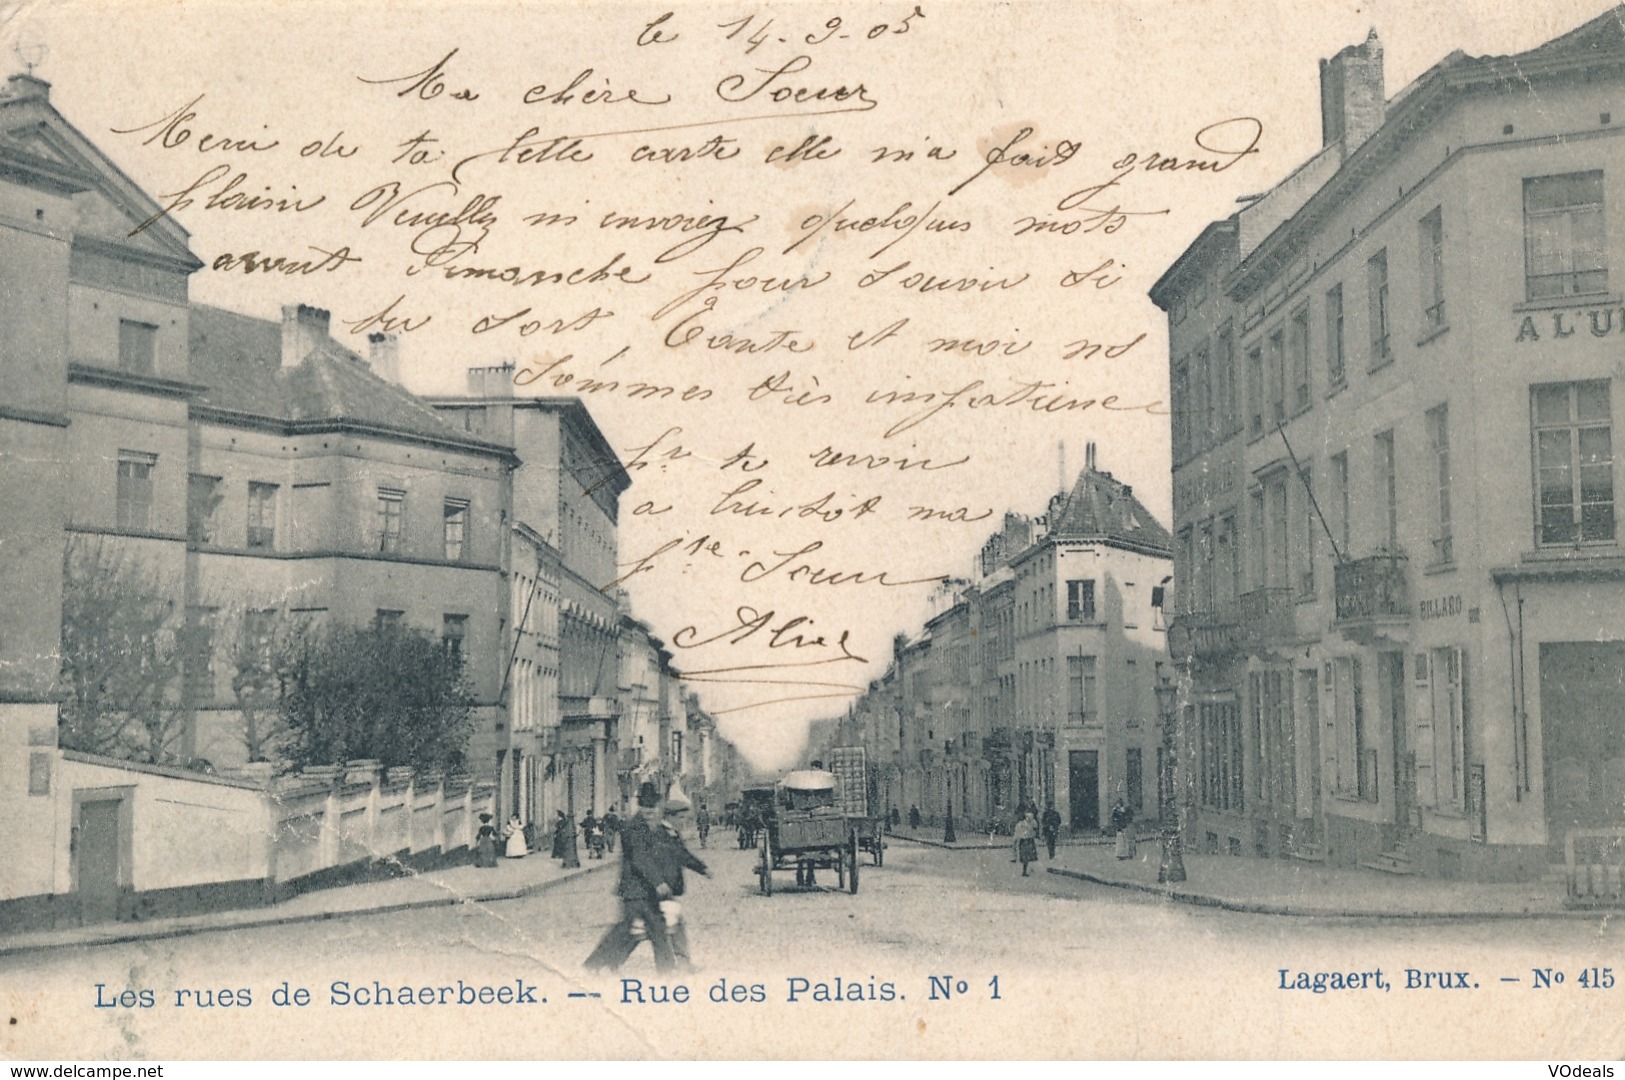 le 14-9-05
Ma chère Soeur
Merci de ta belle carte elle m'a fait grand
plaisir Veuilly m'envoiez quelques mots
avant Dimanche pour savoir si
tu sort, Tante et moi ns
sommes très impatience
pr te revoir
a bientôt ma
pte Soeur
Alice
A L'U
BILLARD
Les rues de Schaerbeek. — Rue des Palais. No 1
Lagaert, Brux. — No 415
www.delcampe.net
VOdeals